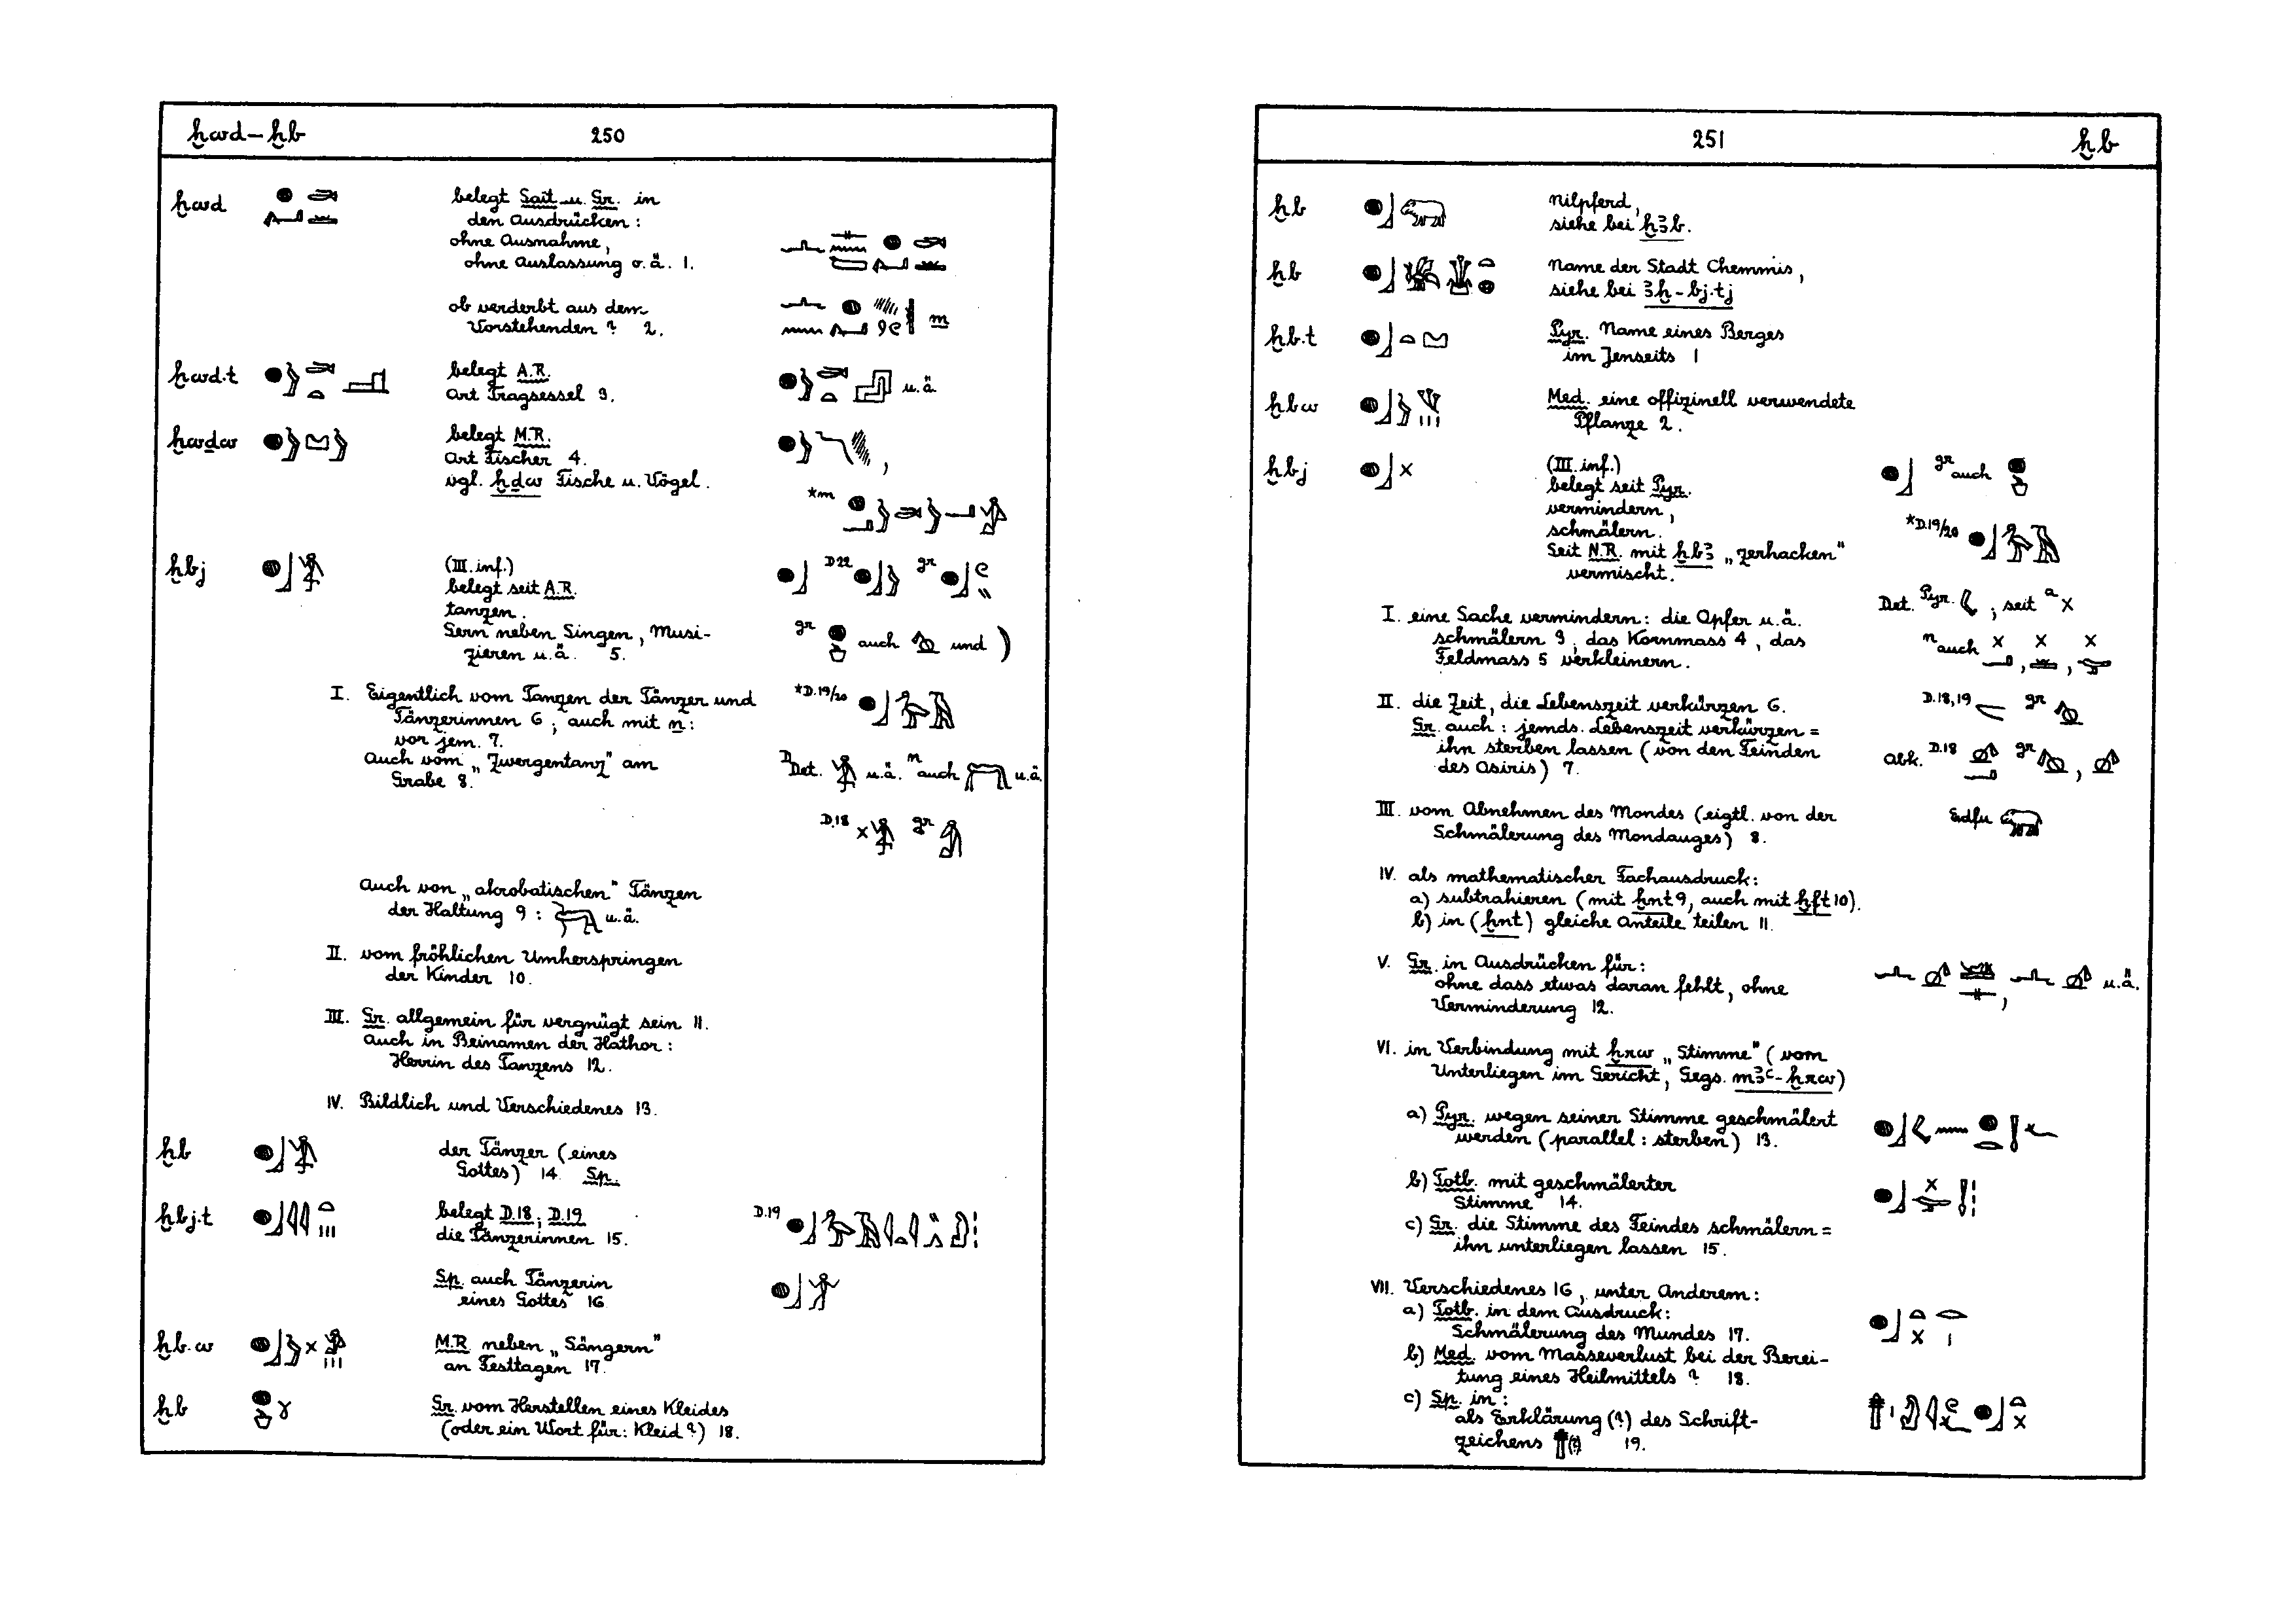 ḫwd–ḫb 250
ḫwd
belegt Sait. u. Gr. in
den Ausdrücken:
ohne Ausnahme,
ohne Auslassung o.ä. 1.
ob verderbt aus dem
Vorstehenden? 2.
m
ḫwd.t
belegt A.R.
Art Tragsessel 3.
u.ä.
ḫwdw
belegt M.R.
Art Fischer 4.
vgl. ḫdw Fische u. Vögel.
,
*m
ḫbj
(III. inf.)
belegt seit A.R.
tanzen.
Gern neben Singen, Musi-
zieren u.ä. 5.
D22 gr
gr auch und
I. Eigentlich vom Tanzen der Tänzer und
Tänzerinnen 6; auch mit n:
vor jem. 7.
Auch vom „Zwergentanz" am
Grabe 8.
*D.19/20
Det. u.ä. n auch u.ä.
D.18 gr
Auch von „akrobatischen" Tänzen
der Haltung 9: u.ä.
II. vom fröhlichen Umherspringen
der Kinder 10.
III. Gr. allgemein für vergnügt sein 11.
Auch in Beinamen der Hathor:
Herrin des Tanzens 12.
IV. Bildlich und Verschiedenes 13.
ḫb
der Tänzer (eines
Gottes) 14. Sp.
ḫbj.t
belegt D.18; D.19
die Tänzerinnen 15.
D.19
Sp. auch Tänzerin
eines Gottes 16
ḫb.w
M.R neben „Sängern"
an Festtagen 17.
ḫb
Gr. vom Herstellen eines Kleides
(oder ein Wort für: Kleid?) 18.
251 ḫb
ḫb
Nilpferd,
siehe bei ḫꜣb.
ḫb
Name der Stadt Chemmis,
siehe bei ꜣḫ-bj.tj
ḫb.t
Pyr. Name eines Berges
im Jenseits 1
ḫbw
Med. eine offizinell verwendete
Pflanze 2.
ḫbj
(III. inf.)
belegt seit Pyr.
vermindern,
schmälern.
Seit N.R. mit ḫbꜣ „zerhacken"
vermischt.
gr auch
*D.19/20
Det. Pyr. ; seit a x
n auch , ,
I. eine Sache vermindern: die Opfer u.ä.
schmälern 3, das Kornmass 4, das
Feldmass 5 verkleinern.
II. die Zeit, die Lebenszeit verkürzen 6.
Gr. auch: jemds. Lebenszeit verkürzen =
ihn sterben lassen (von den Feinden
des Osiris) 7.
D.18,19 gr
abk. D.18 gr ,
III. vom Abnehmen des Mondes (eigtl. von der
Schmälerung des Mondauges) 8.
Edfu
IV. als mathematischer Fachausdruck:
a) subtrahieren (mit ḫnt 9, auch mit ḫft 10).
b) in (ḫnt) gleiche Anteile teilen 11.
V. Gr. in Ausdrücken für:
ohne dass etwas daran fehlt, ohne
Verminderung 12.
, u.ä.
VI. in Verbindung mit ḫrw „Stimme" (vom
Unterliegen im Gericht, Gegs. mꜣꜥ-ḫrw)
a) Pyr. wegen seiner Stimme geschmälert
werden (parallel: sterben) 13.
b) Totb. mit geschmälerter
Stimme 14.
c) Gr. die Stimme des Feindes schmälern =
ihn unterliegen lassen 15.
VII. Verschiedenes 16, unter Anderem:
a) Totb. in dem Ausdruck:
Schmälerung des Mundes 17.
b) Med. vom Masseverlust bei der Berei-
tung eines Heilmittels? 18.
c) Sp. in:
als Erklärung (?) des Schrift-
zeichens (?) 19.